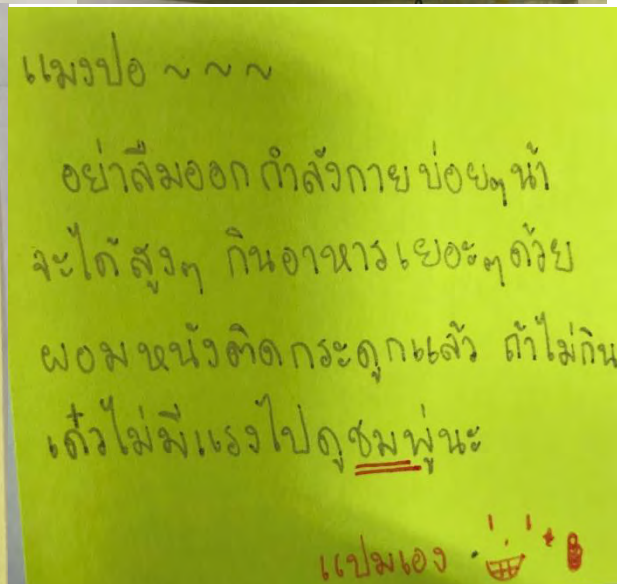 แมงปอ ~ ~ ~
อย่าลืมออกกำลังกายบ่อยๆน้า
จะได้สูงๆ กินอาหารเยอะๆด้วย
ผอมหนังติดกระดูกแล้ว ถ้าไม่กิน
เดี๋วไม่มีแรงไปดูชมพู่นะ
แปมเอง